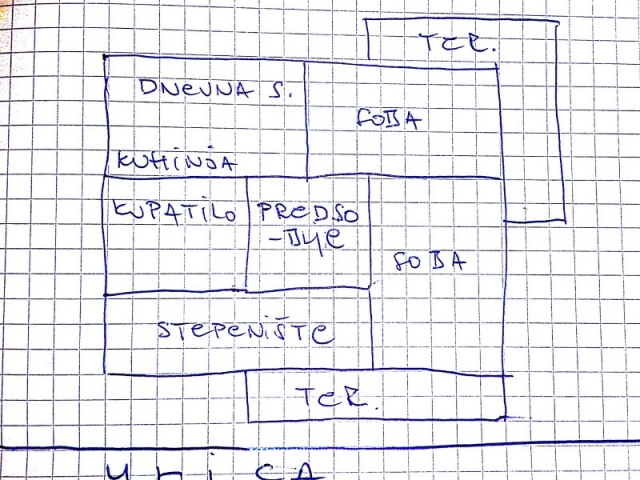 TER.
DNEVNA S.
SOBA
KUHINJA
KUPATILO
PREDSO
-BLJE
SOBA
STEPENIŠTE
TER.
ULICA